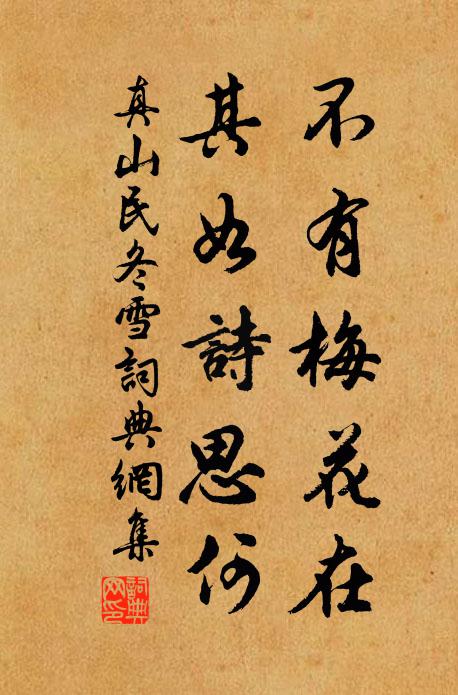 不有梅花在
其如詩思何
真山民冬雪詞典網集
詞典
网印